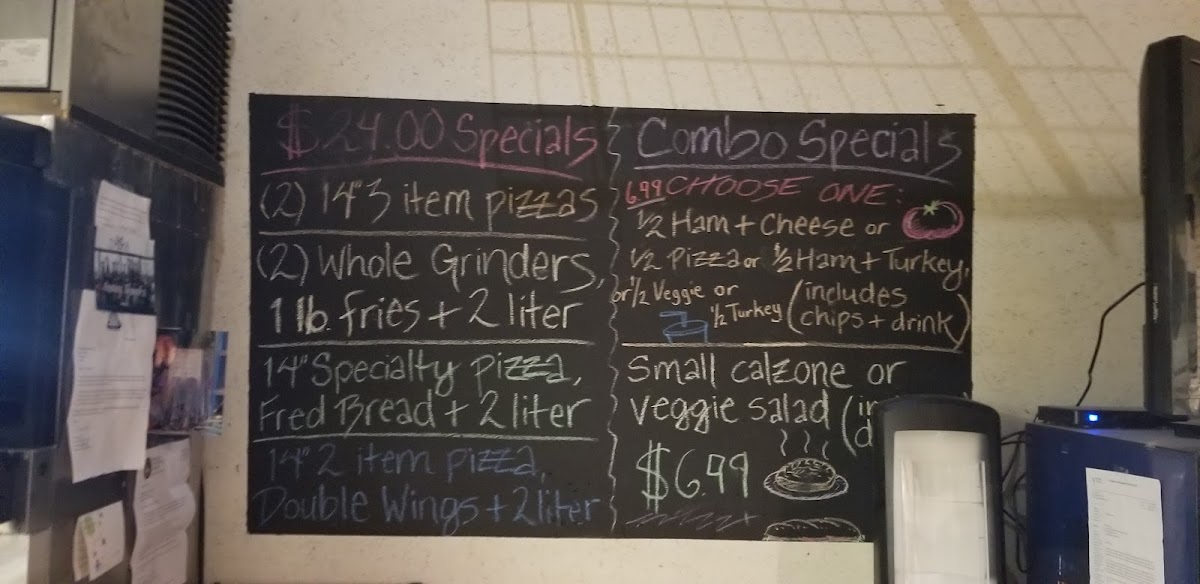 $24.00 Specials
(2) 14" 3 item pizzas
(2) Whole Grinders,
1 lb. fries + 2 liter
14" Specialty pizza,
Fred Bread + 2 liter
14" 2 item pizza,
Double Wings + 2 liter
Combo Specials
6.99 CHOOSE ONE:
1/2 Ham + Cheese or
1/2 Pizza or 1/2 Ham + Turkey,
or 1/2 Veggie or
1/2 Turkey (includes
chips + drink)
Small calzone or
veggie salad (in
d
$6.99